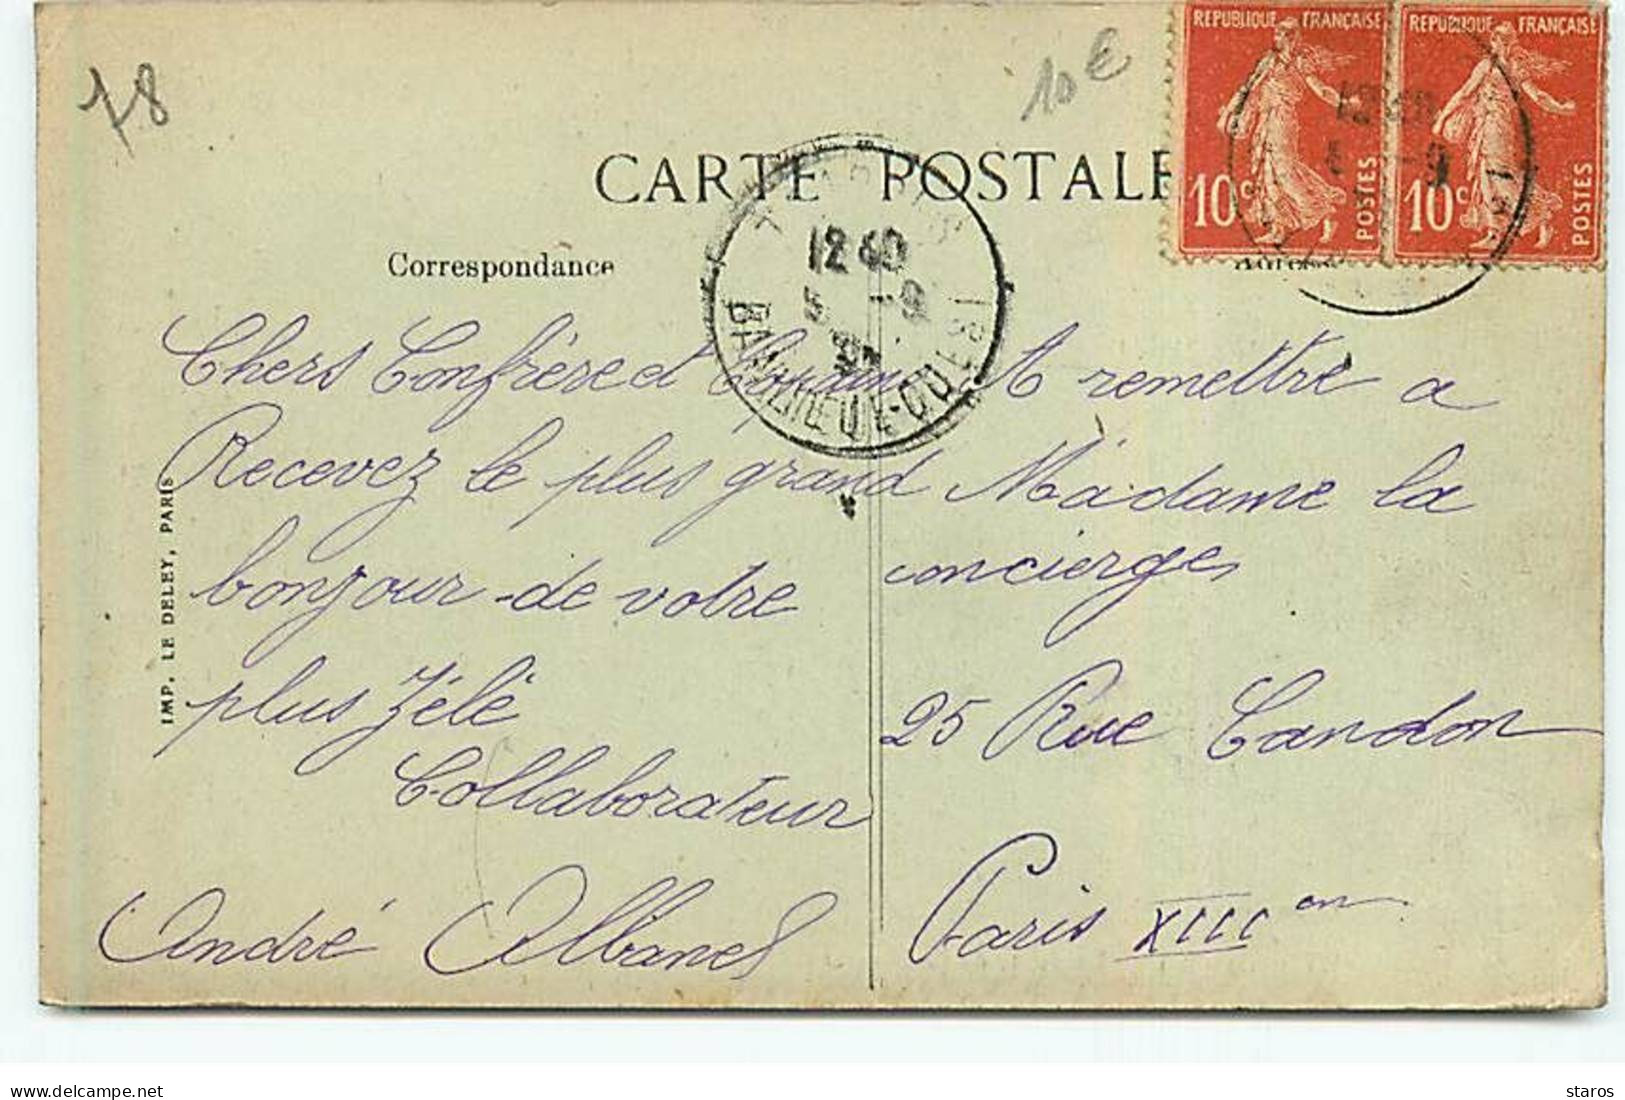 78
10€
REPUBLIQUE FRANÇAISE
10c POSTES
REPUBLIQUE FRANÇAISE
10c POSTES
CARTE POSTALE
12 40
5 -9
BANLIEUE-OUEST
Correspondance
Chers Confrère et Copain
Recevez le plus grand
bonjour de votre
plus zélé
Collaborateur
André Albanel
A remettre a
Madame la
concierge
25 Rue Gandon
Paris XIII em
IMP. LE DELEY, PARIS
delcampe.net
staros